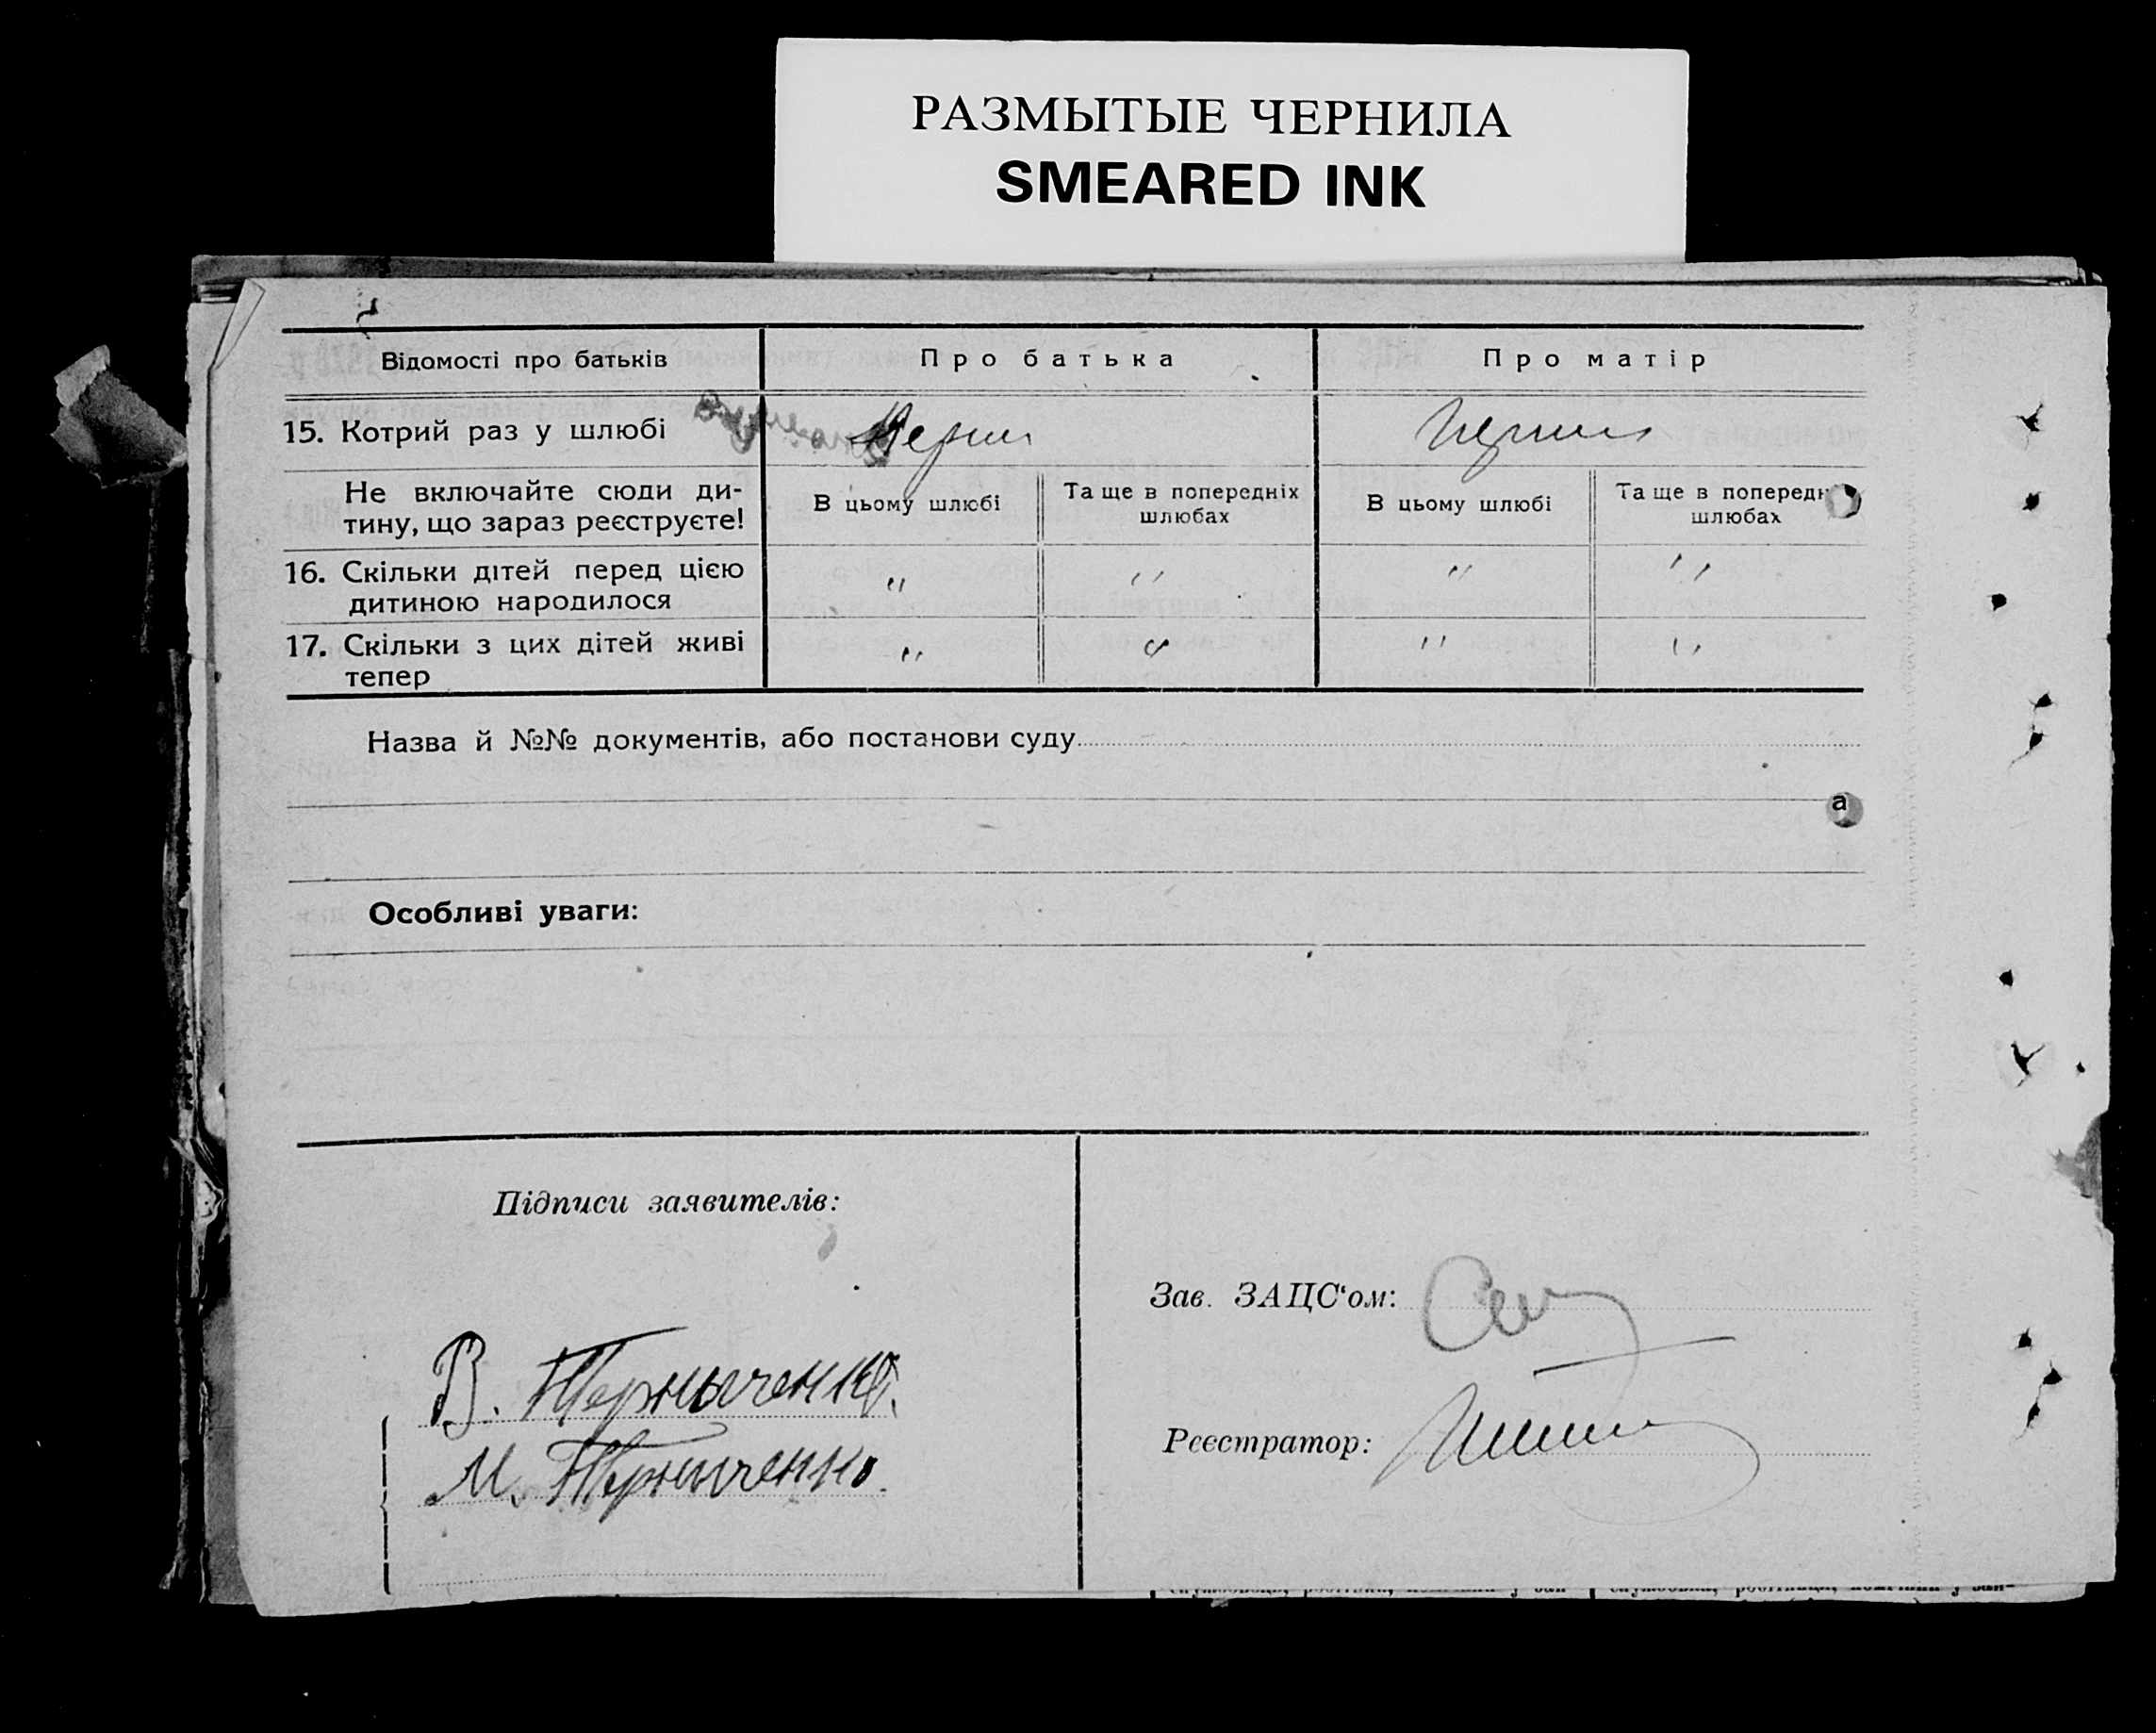 РАЗМЫТЫЕ ЧЕРНИЛА
SMEARED INK
Відомості про батьків
Про батька
Про матір
15. Котрий раз у шлюбі
Перши
Перши
Не включайте сюди ди-
тину, що зараз реєструєте!
В цьому шлюбі
Та ще в попередніх
шлюбах
В цьому шлюбі
Та ще в поперед
шлюбах
16. Скільки дітей перед цією
дитиною народилося
" " " "
17. Скільки з цих дітей живі
тепер
" " " "
Назва й №№ документів, або постанови суду
а
Особливі уваги:
Підписи заявителів:
Зав. ЗАЦС‘ом:
В. Терниченко.
Реєстратор:
М. Терниченко.